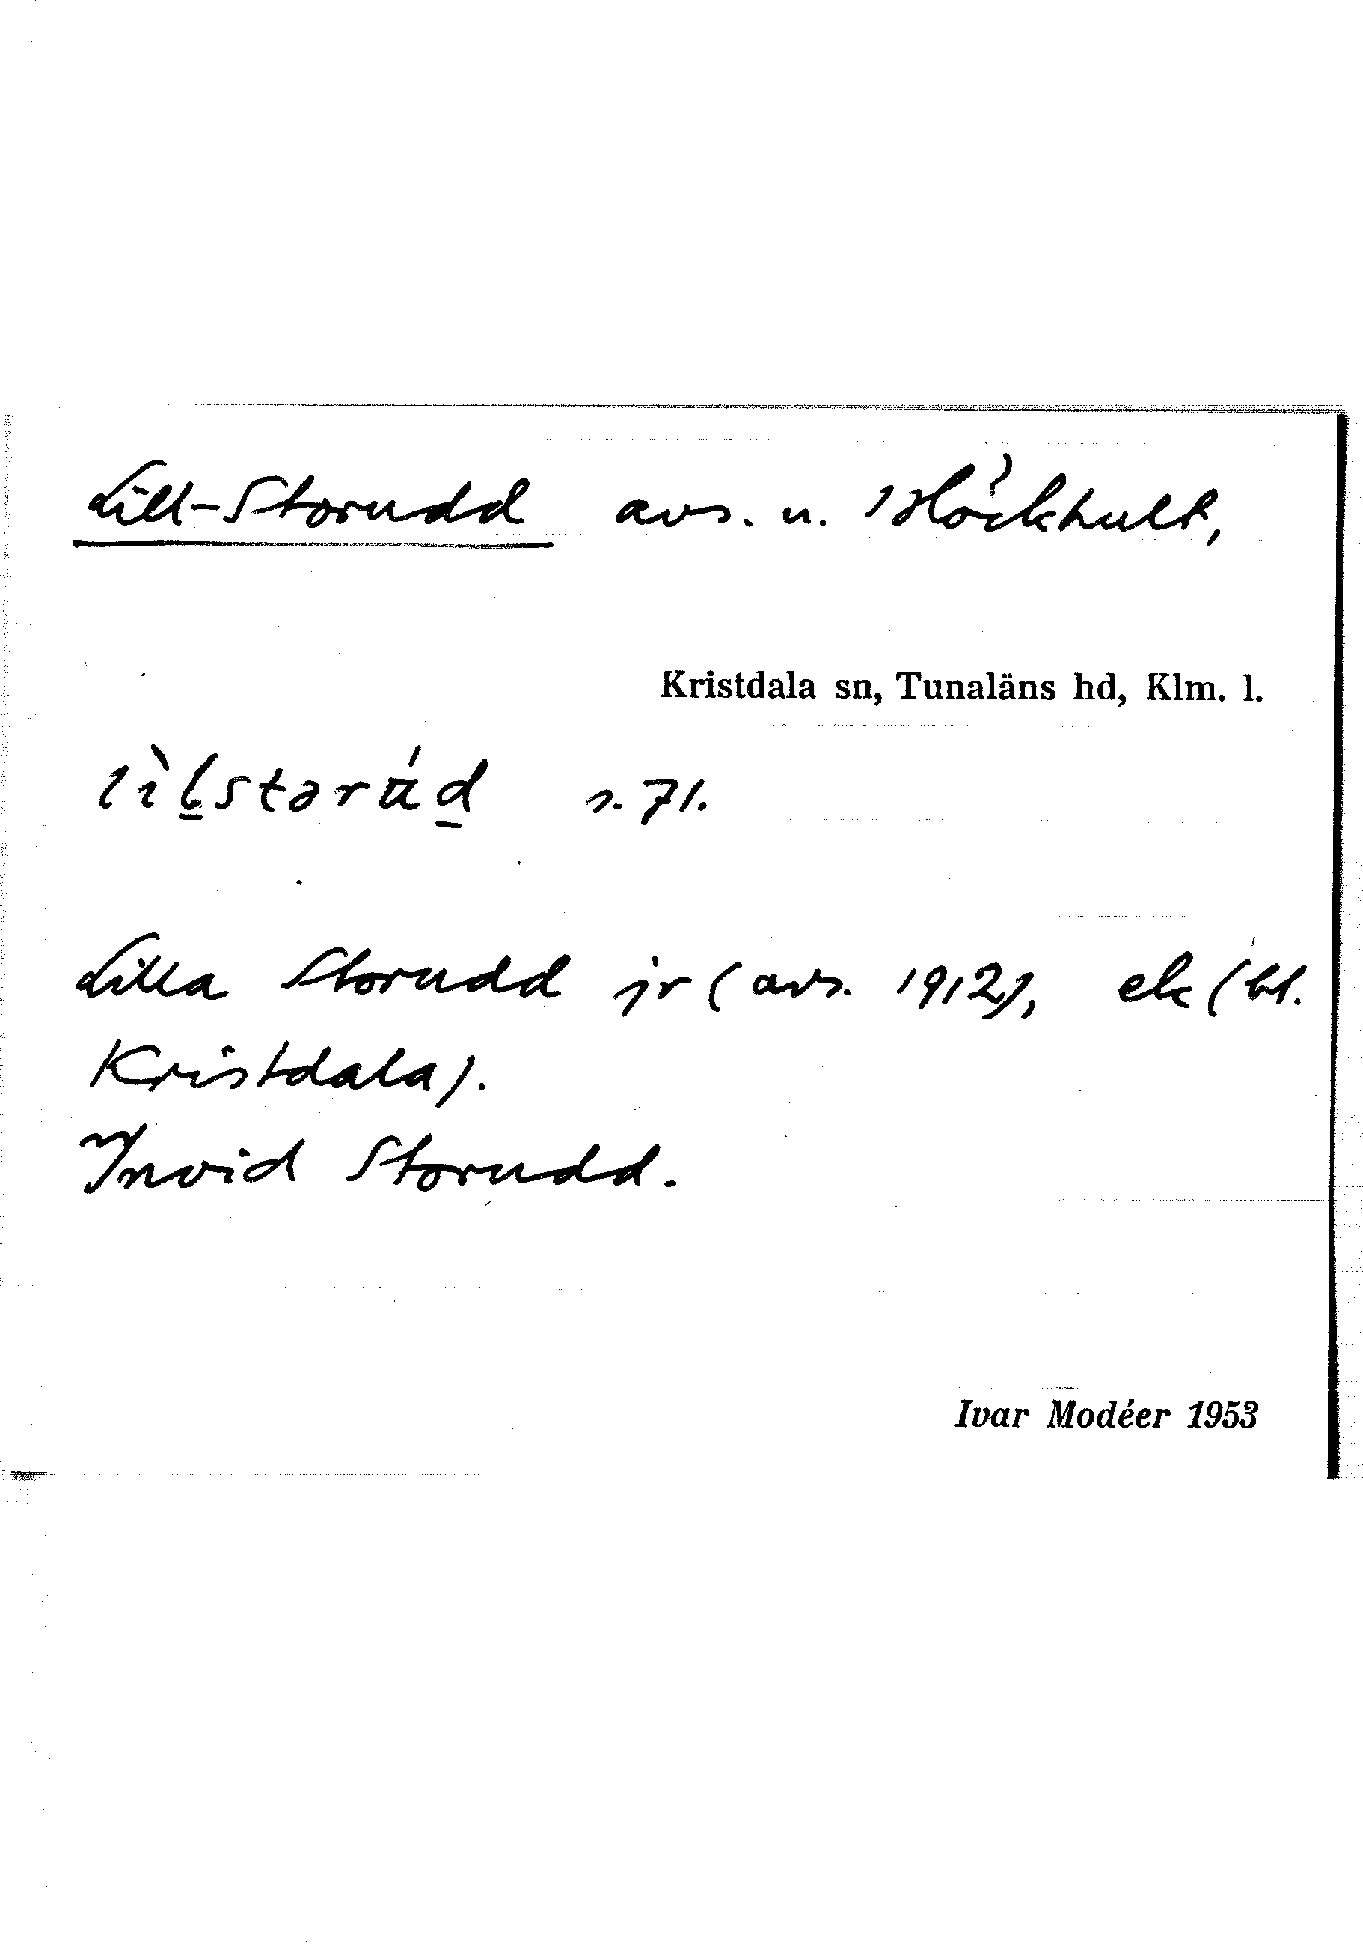 Lill-Storudd avs. u. 1 Höckhult,
Kristdala sn, Tunaläns hd, Klm. l.
s. 71.
Lilla Storudd jr (avs. 1912), ek (bl.
Kristdala).
Invid Storudd.
Ivar Modéer 1953